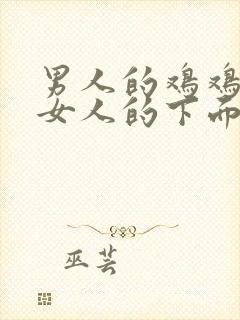 男人的鸡鸡
女人的下而
巫芸